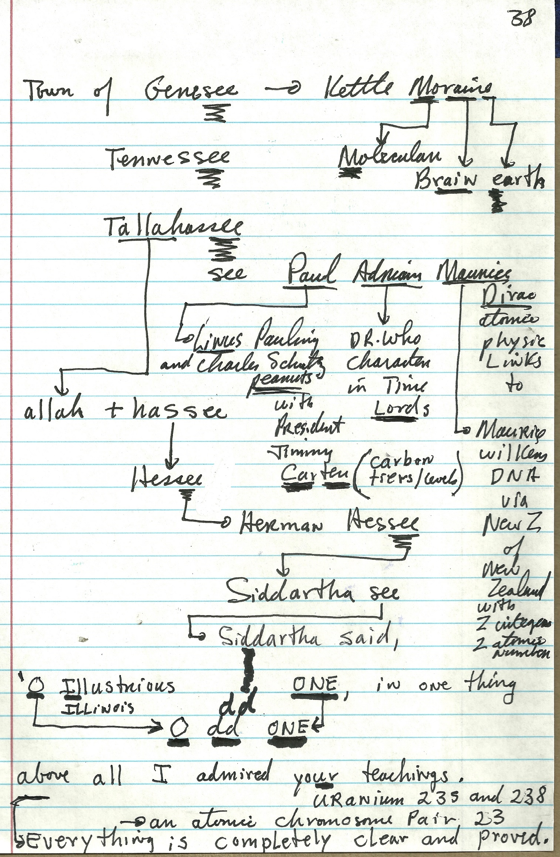 38
Town of Genesee → Kettle Moraine
Tennessee
Molecular
Brain earth
Tallahassee
see
Paul Adriain Maurice
Dirac
atomic
physic
Links
to
Linus Pauling
and Charles Schultz
peanuts
with
President
Jimmy
Carter (carbon
tiers/levels)
DR. Who
character
in Time
Lords
allah + hassee
Maurice
wilkens
DNA
via
New Z
of
New
Zealand
with
Z integers
Z atomic
number
Hessee
HERMAN Hessee
Siddartha see
Siddartha said,
'O Illustrious ONE, in one thing
ILLINOIS
dd
O dd ONE
above all I admired your teachings.
URanium 235 and 238
an atomic chromosome Pair 23
Everything is completely clear and proved.